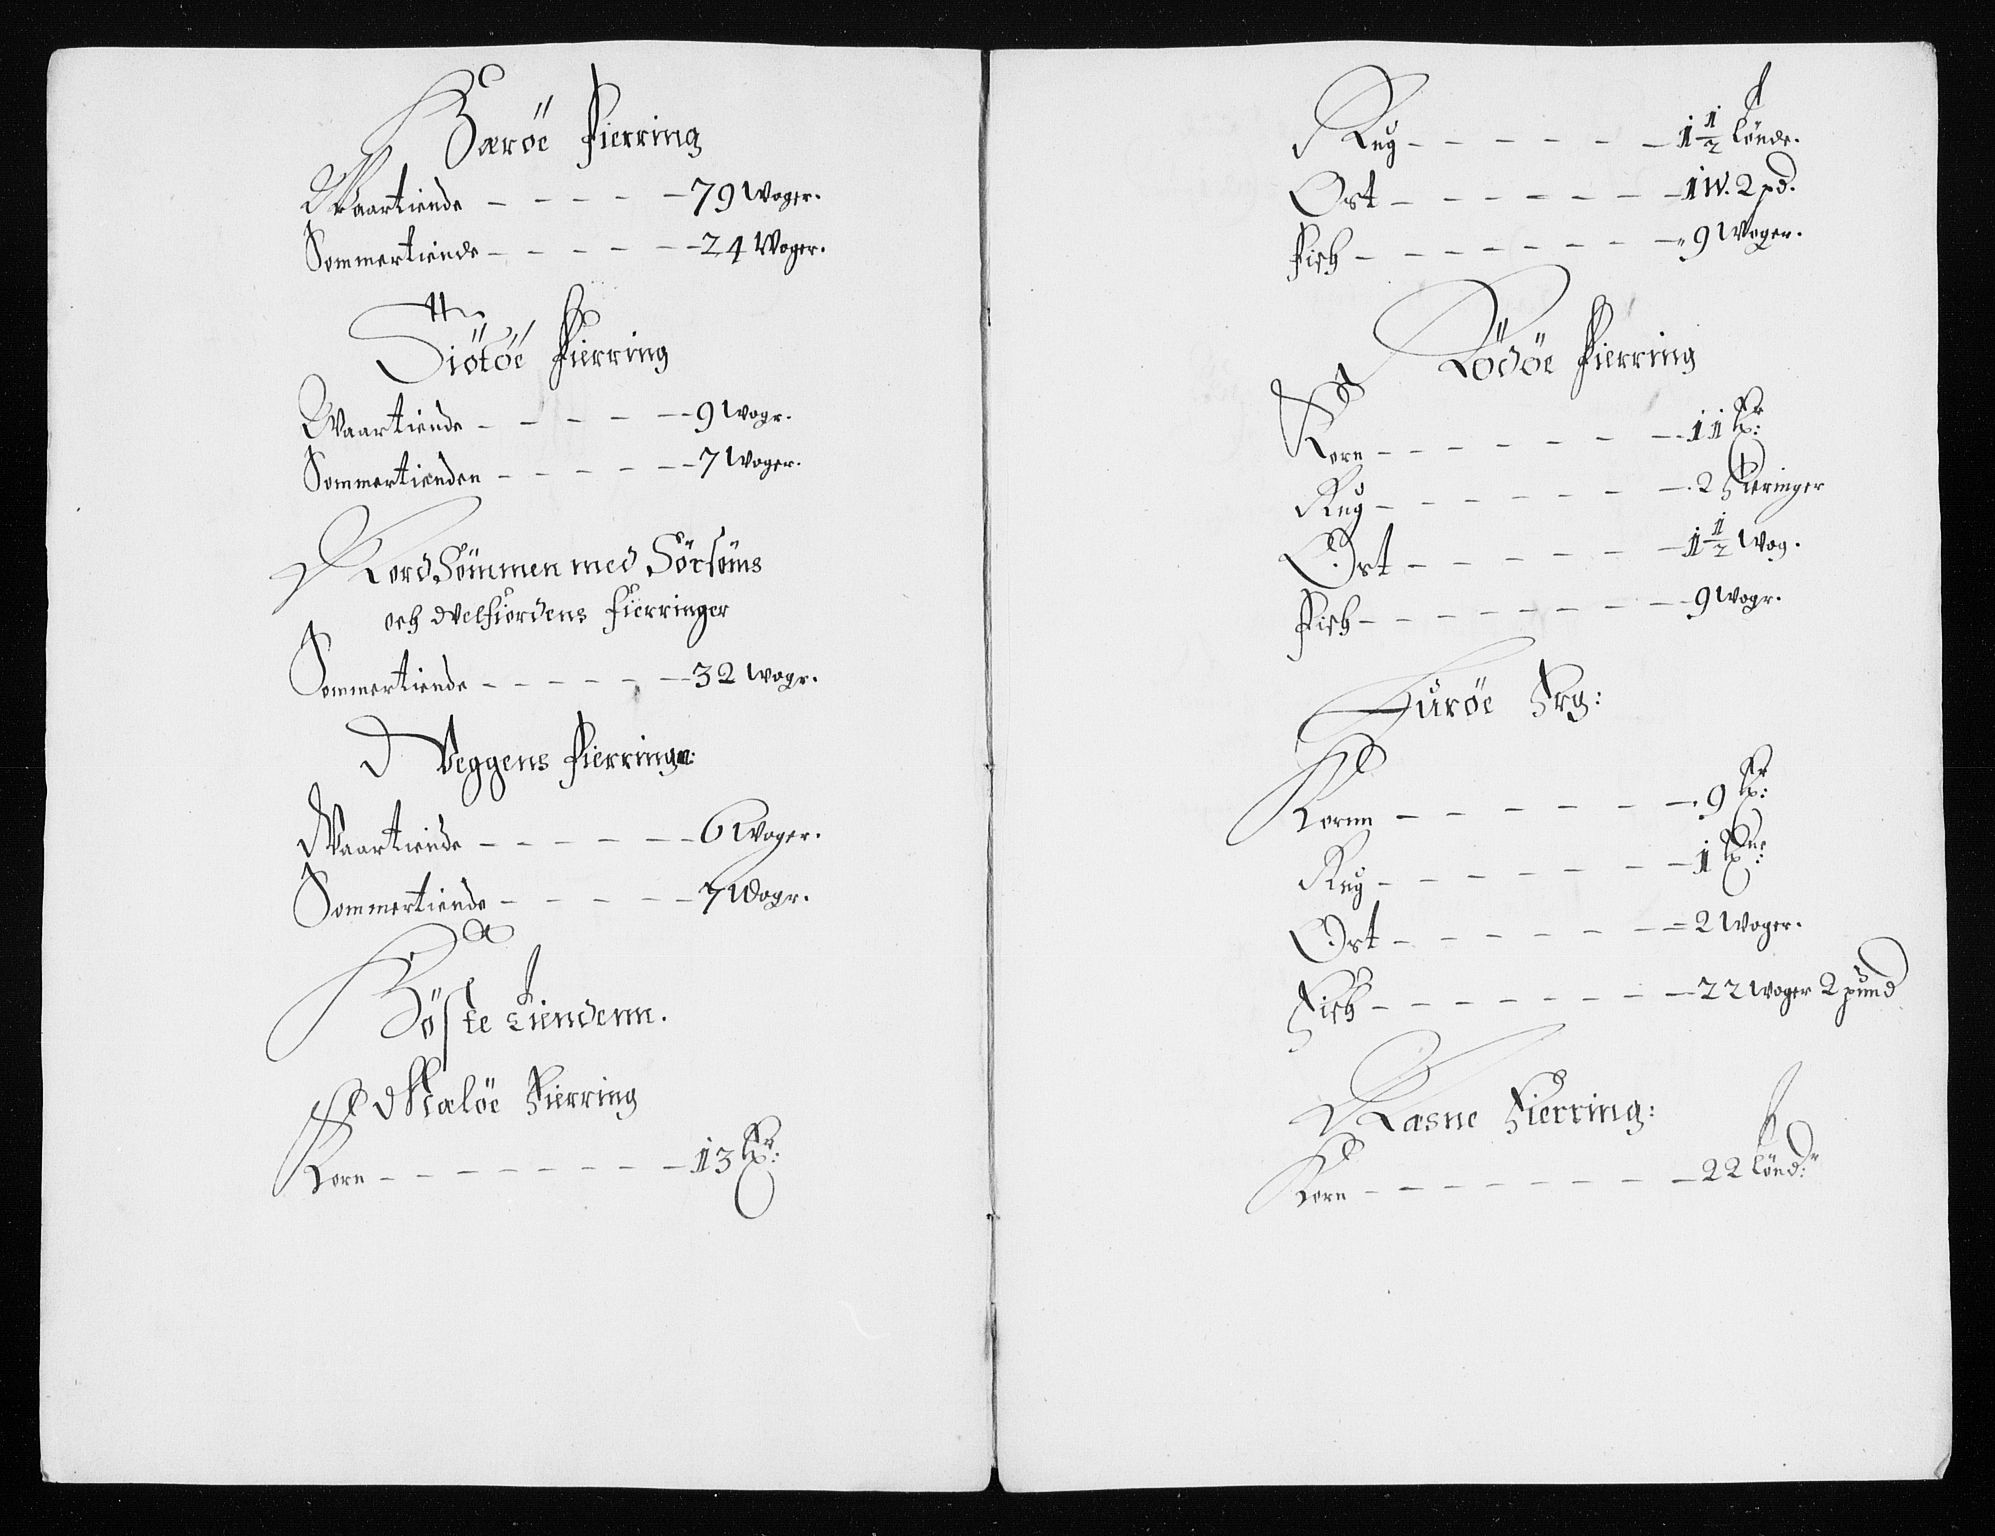 Barøe Fierring
Waartiende - - - - - 79 Woger.
Sommertiende - - - - - 24 Woger.
Tiötöe Fierring
Waartiende - - - - - 9 Wogr.
Sommertienden - - - - - 7 Woger.
Nord Sömmen med Sörsöms
och Velfiordens Fierringer
Sommertiende - - - - - 32 Wogr.
Veggens Fierring:
Waartiende - - - - - 6 Woger.
Sommertiende - - - - - 7 Wogr.
Höste tiendenn.
Næsöe Fierring
Korn - - - - - - - 13
Rug - - - - - - 1 1/2 tönde.
Ost - - - - - - - 1 W. 2 pd.
Fisk - - - - - - - 9 Woger.
Rödöe Fierring
Korn - - - - - - 11
Rug - - - - - - 2 Fieringer
Ost - - - - - - 1 1/2 Wog.
Fisk - - - - - - - 9 Wogr.
Lurøe Frg:
Kornn - - - - - - 9
Rug - - - - - - - 1
Ost - - - - - - - 2 Woger.
Fisk - - - - - - - 22 Woger 2 pund
Næsne Fierring:
Korn - - - - - - - 22 tönd:r